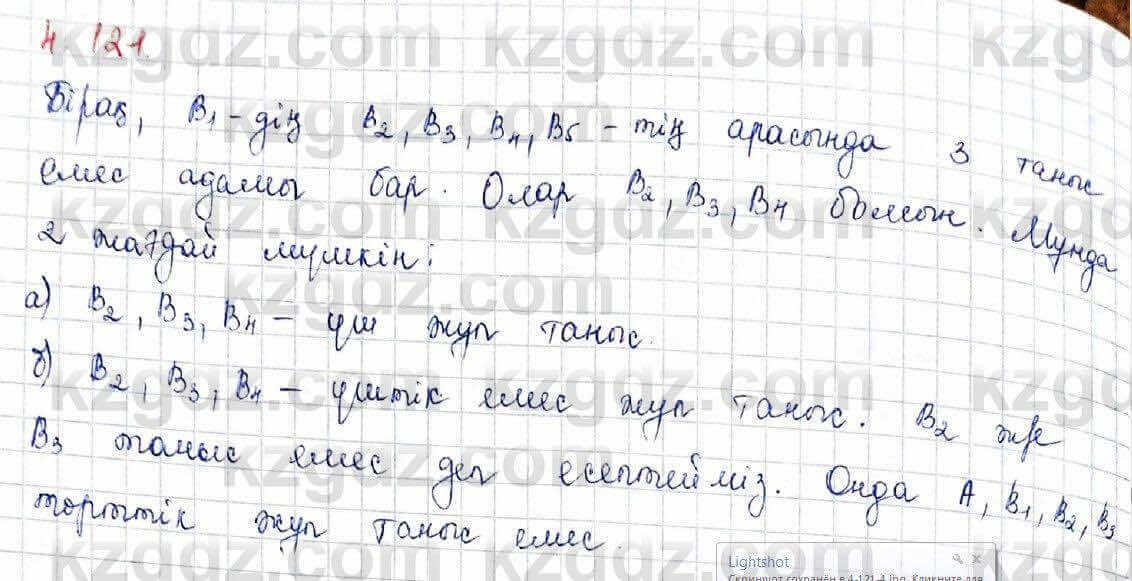 4.121.
Бірақ, B1-дің B2, B3, B4, B5 - тің арасында 3 таныс
емес адамы бар. Олар B2, B3, B4 болсын. Мунда
2 жағдай мүмкін:
а) B2, B3, B4 - үш жұп таныс.
б) B2, B3, B4 - үштік емес жұп таныс. B2 және
B3 таныс емес деп есептейміз. Онда A, B1, B2, B3
төрттік жұп таныс емес.
kzgdz.com
Lightshot
Скриншот сохранён в 4-121-4.jpg. Кликните для